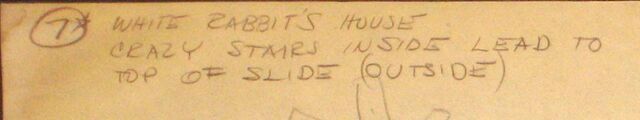 7* WHITE RABBIT'S HOUSE.
CRAZY STAIRS INSIDE LEAD TO
TOP OF SLIDE (OUTSIDE)